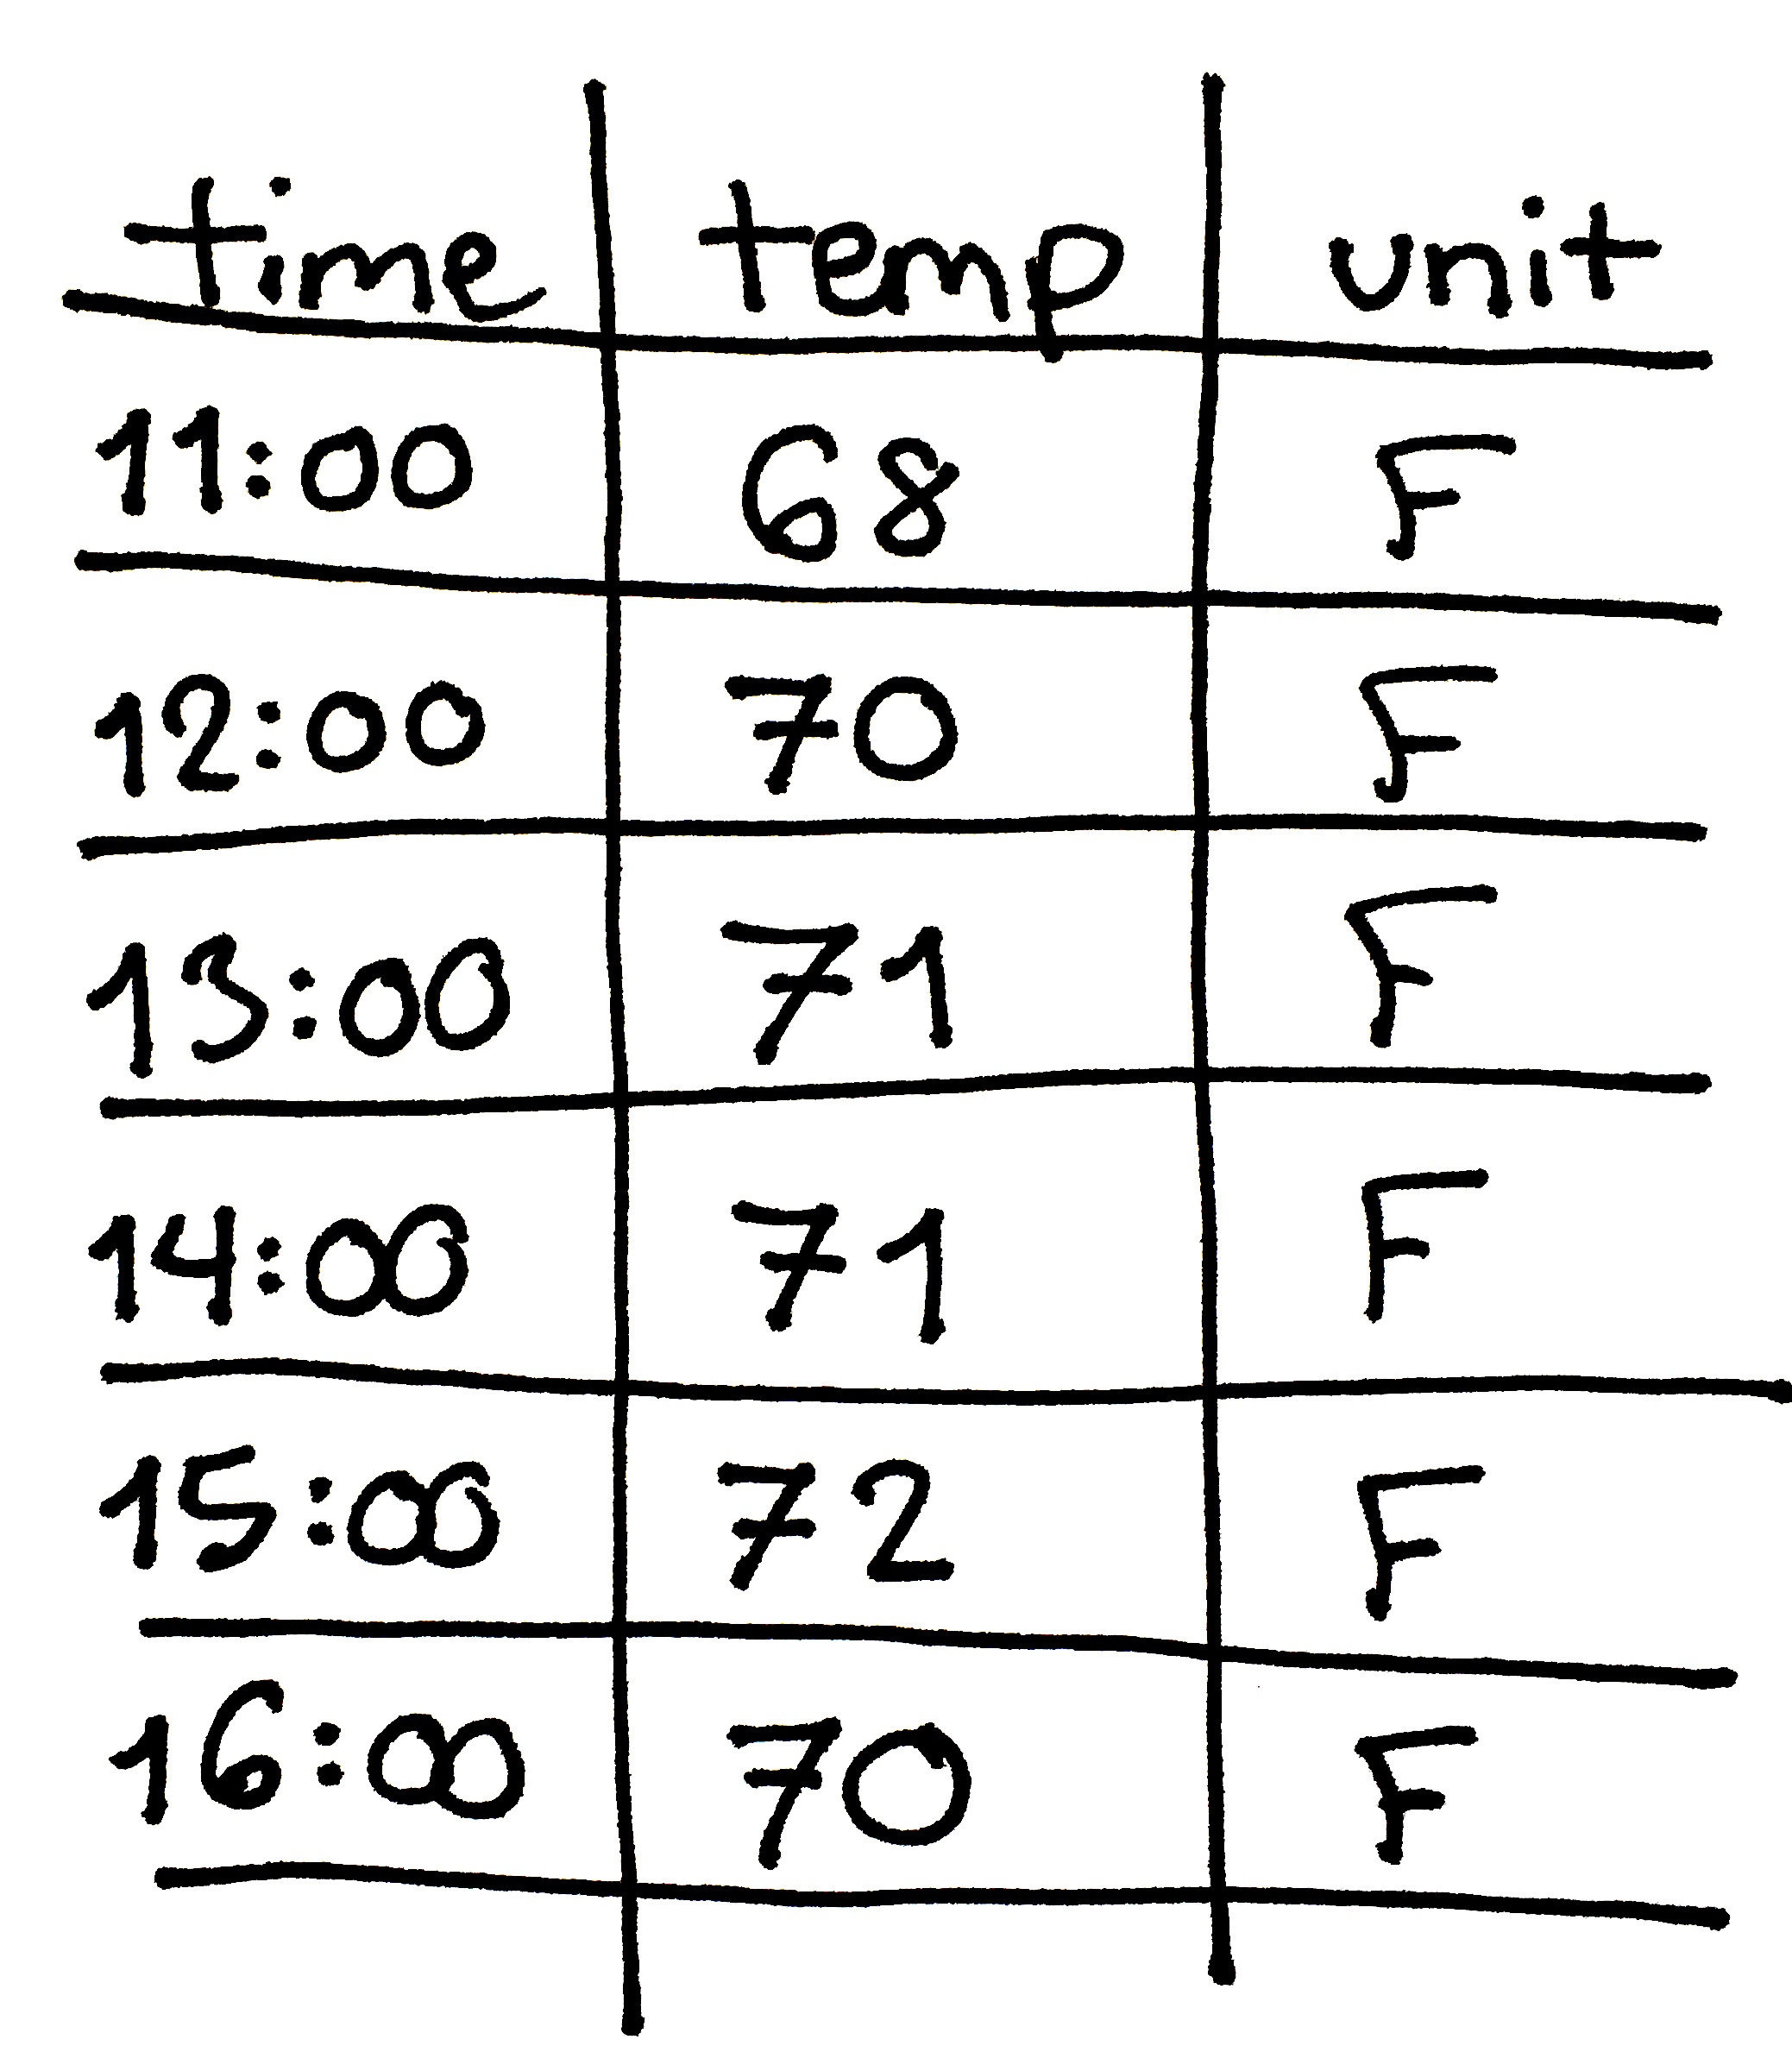 time temp unit
11:00 68 F
12:00 70 F
13:00 71 F
14:00 71 F
15:00 72 F
16:00 70 F